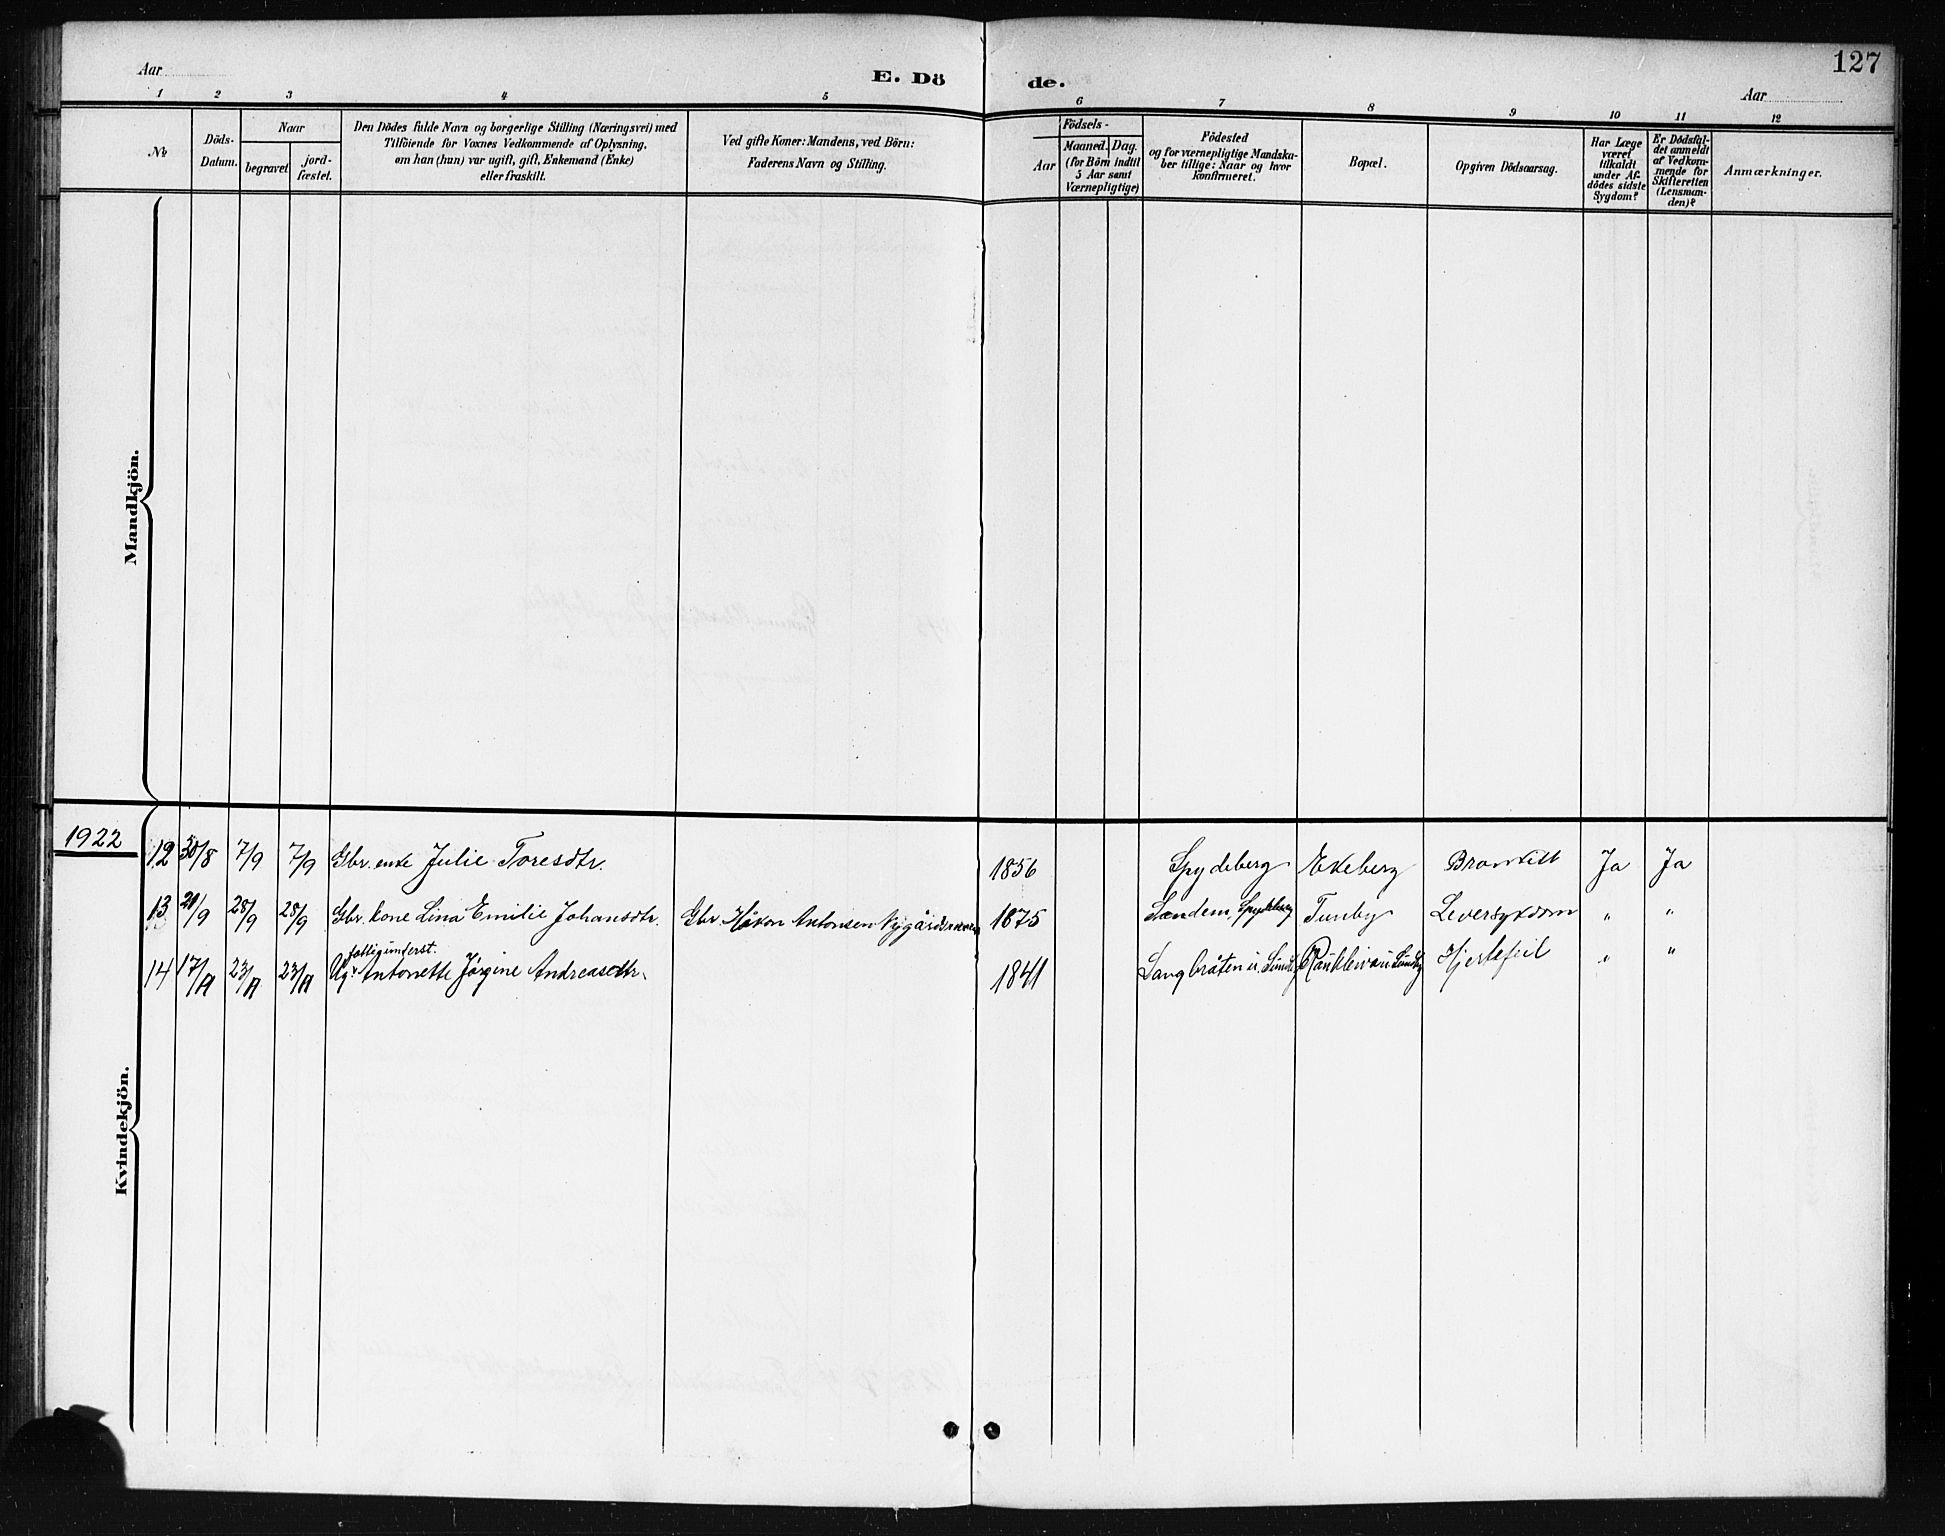 127
Aar
E. Dö
de.
Aar
1 2 3 4 5 6 7 8 9 10 11 12
№
Döds-
Datum.
Naar
begravet
jord-
fæstet.
Den Dödes fulde Navn og borgerlige Stilling (Næringsvei) med
Tilföiende for Voxnes Vedkommende af Oplysning,
om han (hun) var ugift, gift, Enkemand (Enke)
eller fraskilt.
Ved gifte Koner: Mandens, ved Börn:
Faderens Navn og Stilling.
Födsels-
Aar
Maaned. Dag.
(for Börn indtil
5 Aar samt
Værnepligtige)
Födested
og for værnepligtige Mandska-
ber tillige: Naar og hvor
konfirmeret.
Bopæl.
Opgiven Dödsaarsag.
Har Læge
været
tilkaldt
under Af-
dödes sidste
Sygdom?
Er Dödsfal-
det anmeldt
af Vedkom-
mende for
Skifteretten
(Lensman-
den)?
Anmærkninger.
Mandkjön.
Kvindekjön.
1922
12 30/8 7/9 7/9 Gbr. enke Julie Toresdtr. 1856 Spydeberg Ekeberg Bronkitt Ja Ja
13 21/9 28/9 28/9 Gbr. kone Lina Emilie Johansdtr. Gbr. Håkon Antonsen 1875 Spydeberg Tunby Leversykdom " "
fattigunderst.
14 17/11 23/11 23/11 Ug. Antonette Jørgine Andreasdtr. 1841 Langbråten u. Hjertefeil " "